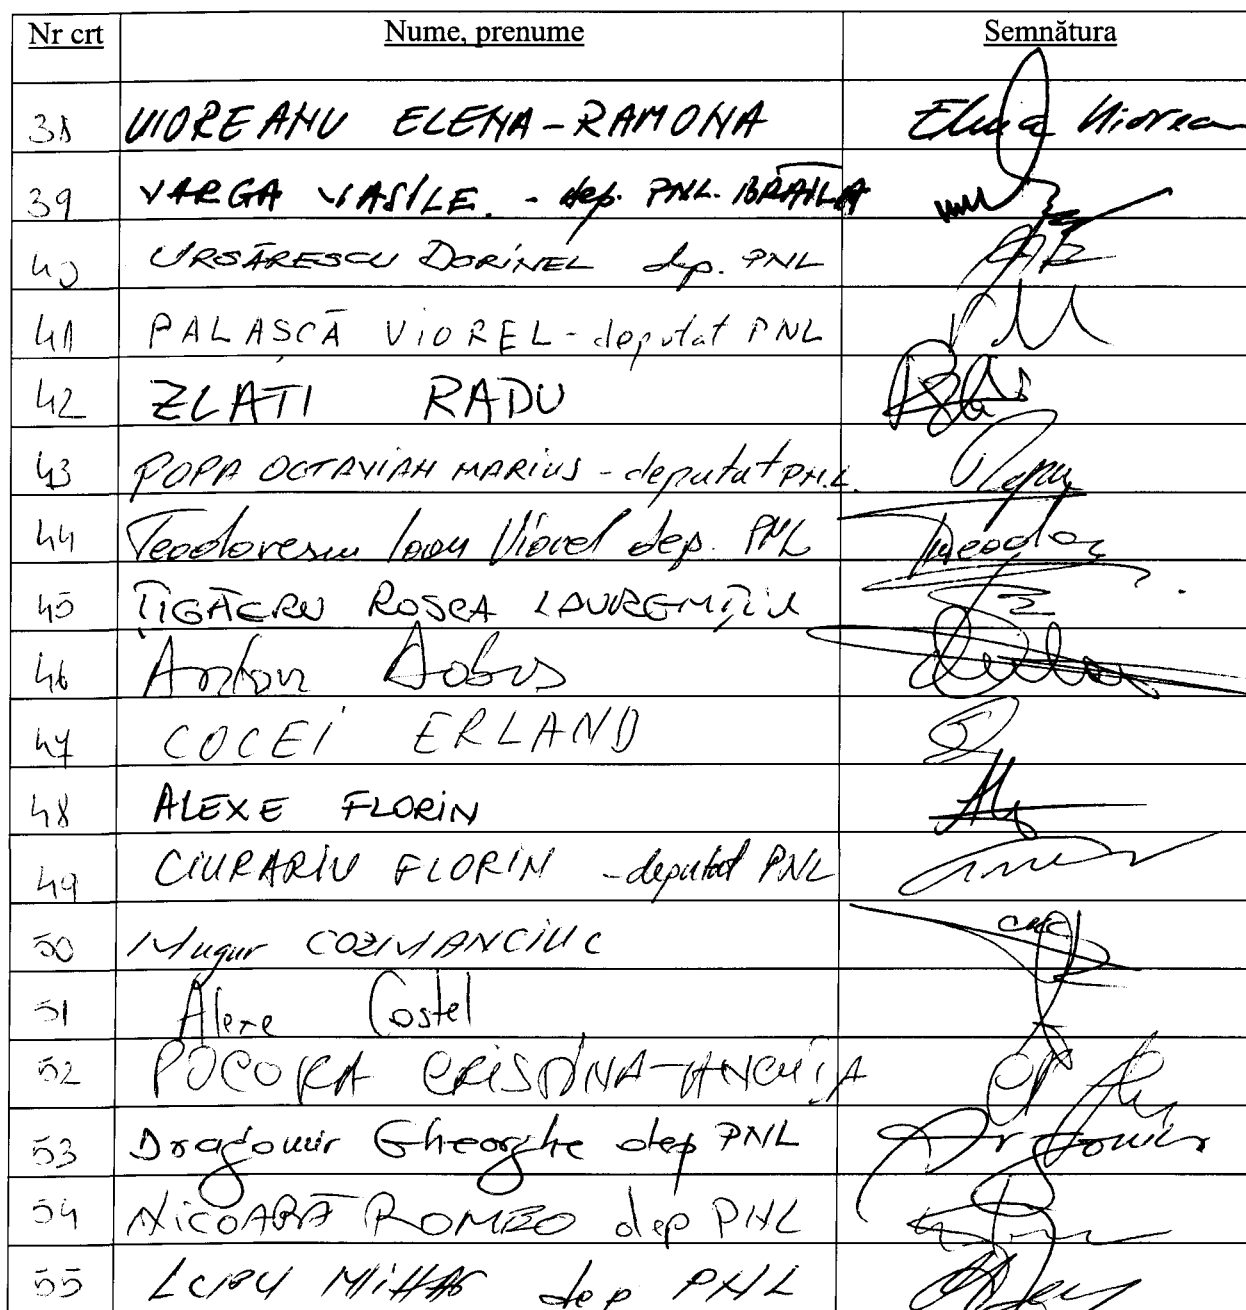 Nr crt Nume, prenume Semnătura
38 VIOREANU ELENA-RAMONA Elena Viorean
39 VARGA VASILE. - dep. PNL. BRĂILA
40 URSĂRESCU DORINEL dep. PNL
41 PALAȘCĂ VIOREL - deputat PNL
42 ZLATI RADU
43 POPA OCTAVIAN MARIUS - deputat P.N.L. Popa
44 Teodorescu Ioan Viorel dep. PNL Theodor
45 ȚIGĂERU ROȘCA LAURENȚIU
46 Anton Dobre
47 COCEI ERLAND
48 ALEXE FLORIN
49 CIURARIU FLORIN - deputat PNL
50 Mugur COZMANCIUC
51 Alexe Costel
52 POCORA CRISTINA-ANCUȚA
53 Dragomir Gheorghe dep PNL Dragomir
54 NICOARĂ ROMEO dep PNL
55 LUPU MIHAI dep PNL